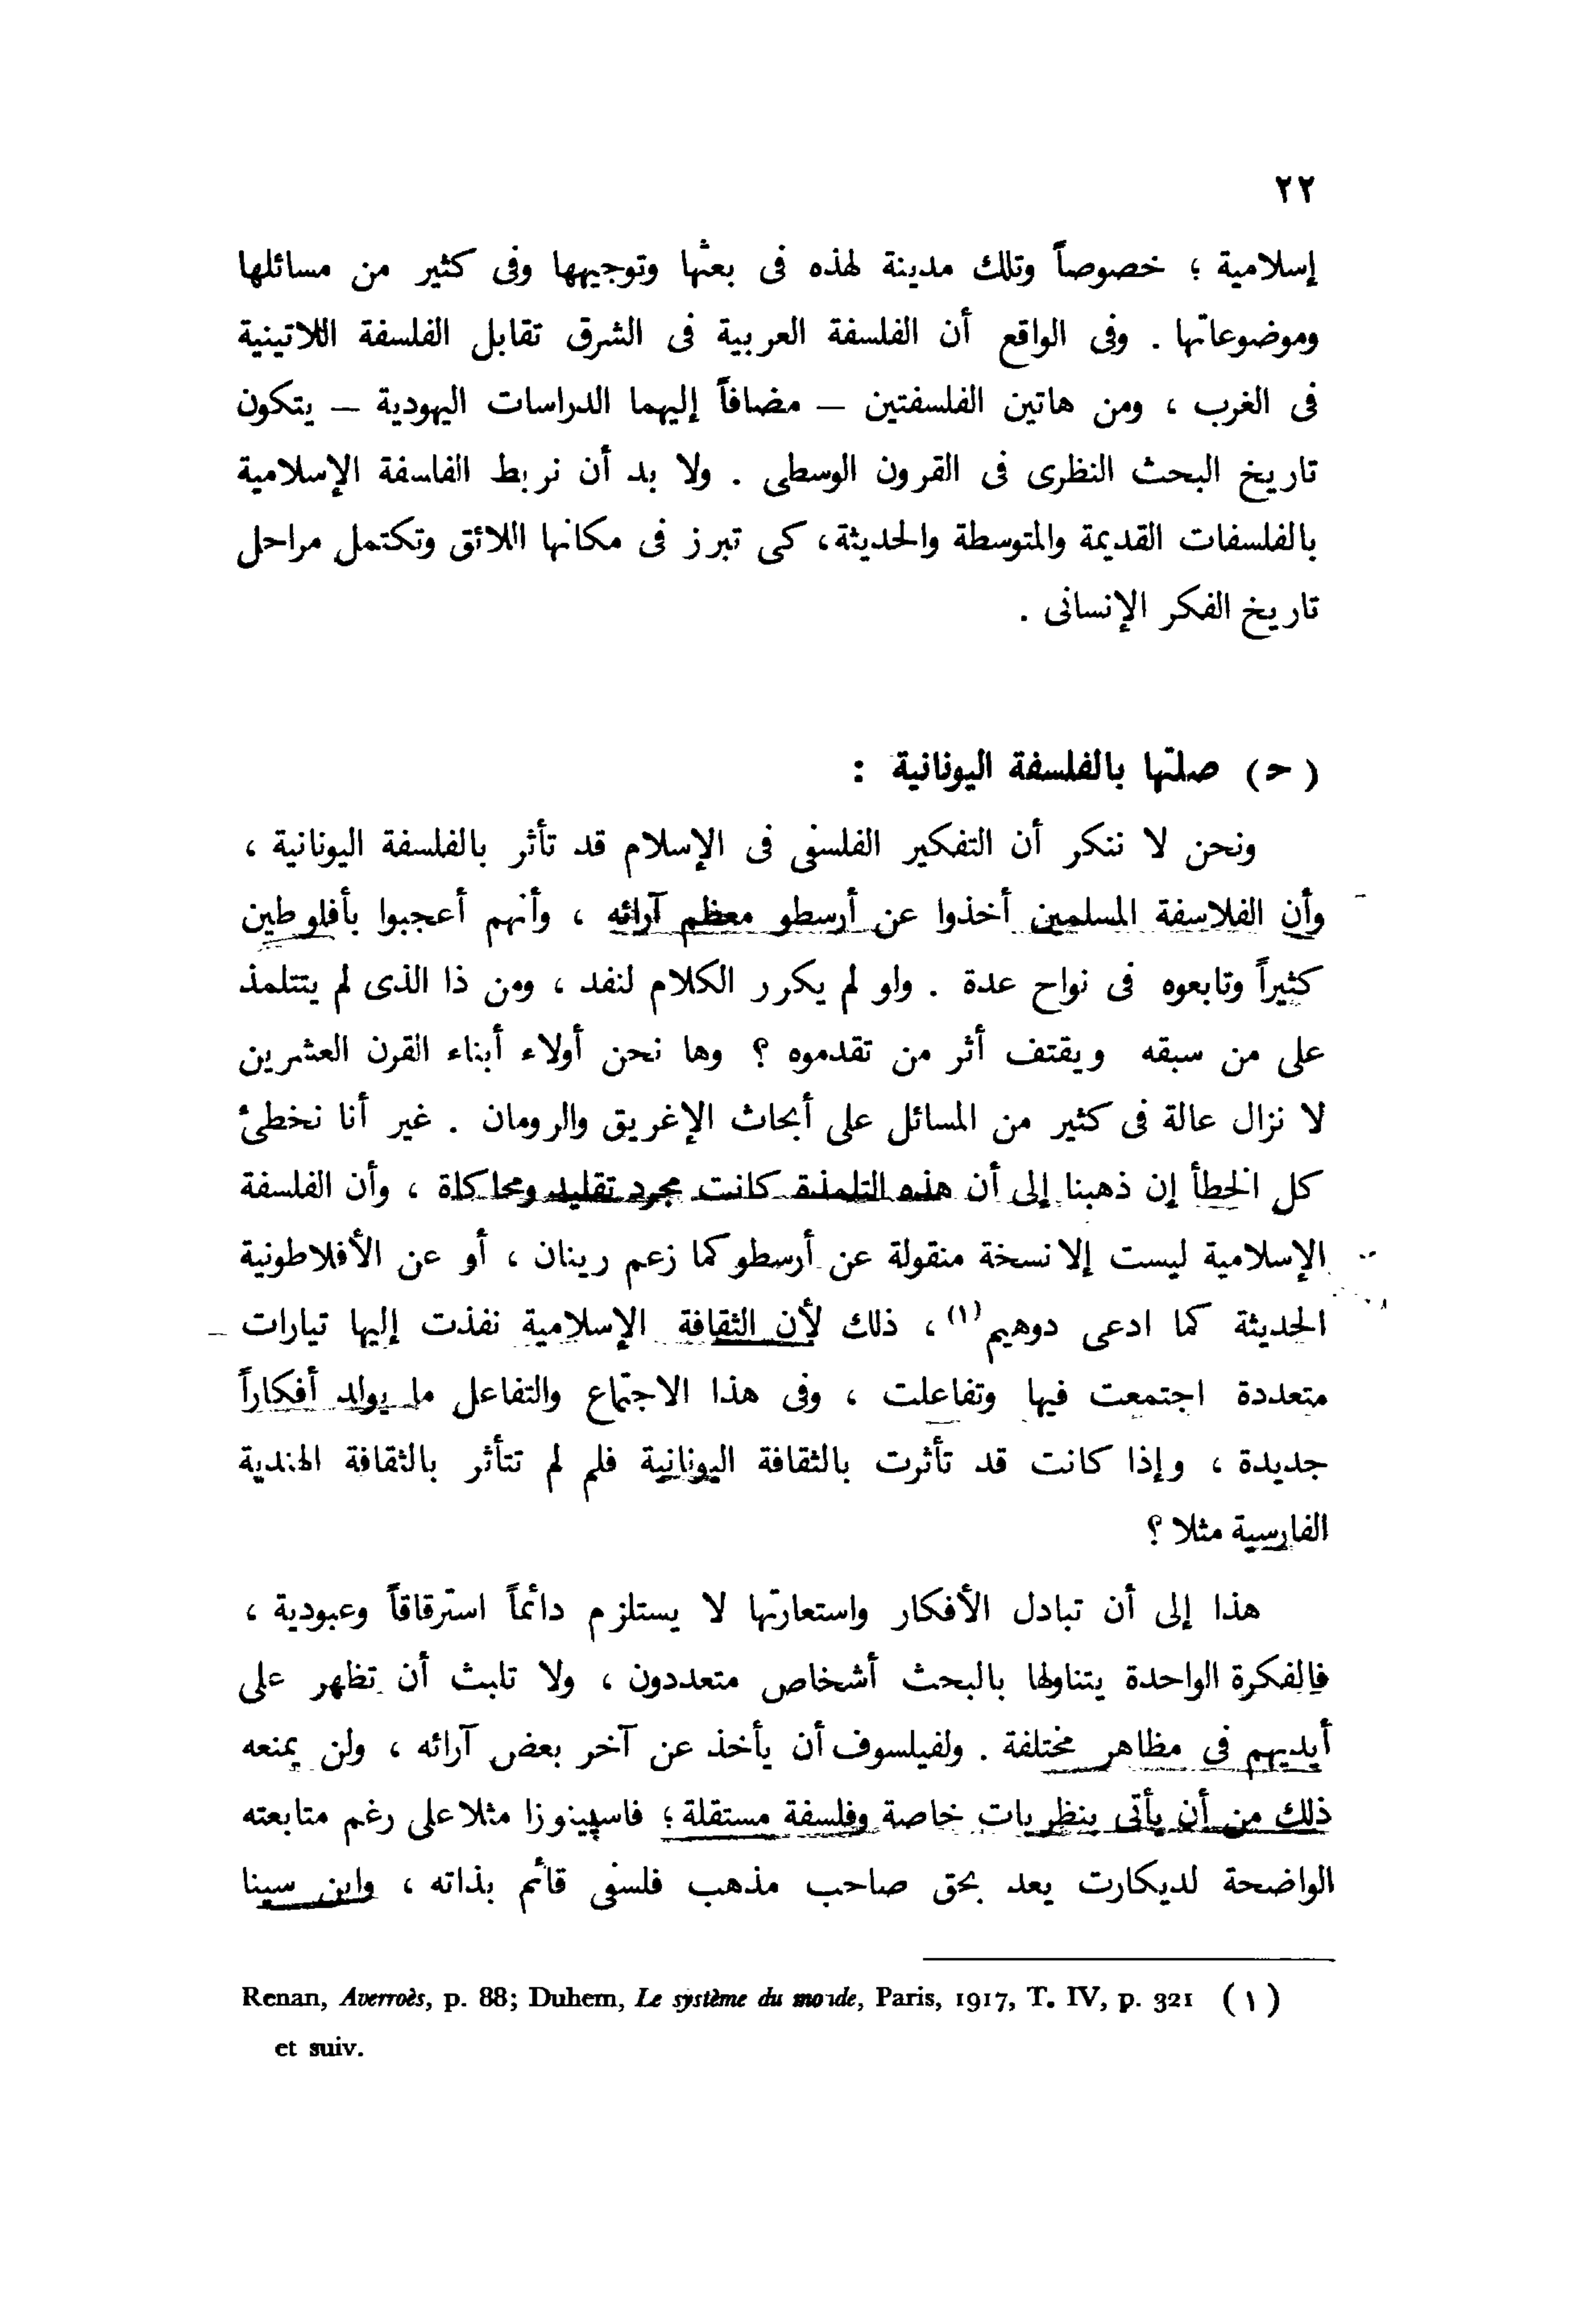 ٢٢
إسلامية ؛ خصوصاً وتلك مدينة لهذه فى بعثها وتوجيهها وفى كثير من مسائلها
وموضوعاتها . وفى الواقع أن الفلسفة العربية فى الشرق تقابل الفلسفة اللاتينية
فى الغرب ، ومن هاتين الفلسفتين – مضافاً إليهما الدراسات اليهودية – يتكون
تاريخ البحث النظرى فى القرون الوسطى . ولا بد أن نربط الفلسفة الإسلامية
بالفلسفات القديمة والمتوسطة والحديثة، كى تبرز فى مكانها اللائق وتكتمل مراحل
تاريخ الفكر الإنسانى .
( ح ) صلتها بالفلسفة اليونانية :
ونحن لا ننكر أن التفكير الفلسفى فى الإسلام قد تأثر بالفلسفة اليونانية ،
وأن الفلاسفة المسلمين أخذوا عن أرسطو معظم آرائه ، وأنهم أعجبوا بأفلوطين
كثيراً وتابعوه فى نواح عدة . ولو لم يكرر الكلام لنفد ، ومن ذا الذى لم يتتلمذ
على من سبقه ويقتف أثر من تقدموه ؟ وها نحن أولاء أبناء القرن العشرين
لا نزال عالة فى كثير من المسائل على أبحاث الإغريق والرومان . غير أنا نخطئ
كل الخطأ إن ذهبنا إلى أن هذه التلمذة كانت مجرد تقليد ومحاكاة ، وأن الفلسفة
الإسلامية ليست إلا نسخة منقولة عن أرسطو كما زعم رينان ، أو عن الأفلاطونية
الحديثة كما ادعى دوهيم (١) ، ذلك لأن الثقافة الإسلامية نفذت إليها تيارات
متعددة اجتمعت فيها وتفاعلت ، وفى هذا الاجتماع والتفاعل ما يولد أفكاراً
جديدة ، وإذا كانت قد تأثرت بالثقافة اليونانية فلم لم تتأثر بالثقافة الهندية
الفارسية مثلا ؟
هذا إلى أن تبادل الأفكار واستعارتها لا يستلزم دائماً استرقاقاً وعبودية ،
فالفكرة الواحدة يتناولها بالبحث أشخاص متعددون ، ولا تلبث أن تظهر على
أيديهم فى مظاهر مختلفة . ولفيلسوف أن يأخذ عن آخر بعض آرائه ، ولن يمنعه
ذلك من أن يأتى بنظريات خاصة وفلسفة مستقلة ؛ فاسپينوزا مثلا على رغم متابعته
الواضحة لديكارت يعد بحق صاحب مذهب فلسفى قائم بذاته ، وابن سينا
Renan, Averroès, p. 88; Duhem, Le système du monde, Paris, 1917, T. IV, p. 321 (١)
et suiv.